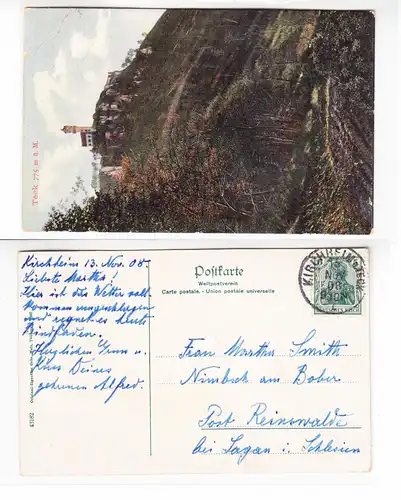 Teck 775 m ü. M.
Kirchheim 13. Nov. 08.
Liebste Martha!
Hier ist das Wetter voll-
kommen umgeschlagen
und regnet es heute
Bindfäden.
Herzlichen Gruss u.
Kuss Deines
getreuen Alfred.
Postkarte
Weltpostverein
Carte postale. - Union postale universelle
KIRCHHEIM
TECK
NOV
08
Frau Martha Smith
Nimbsch am Bober
Post Reinswalde
bei Sagan i. Schlesien